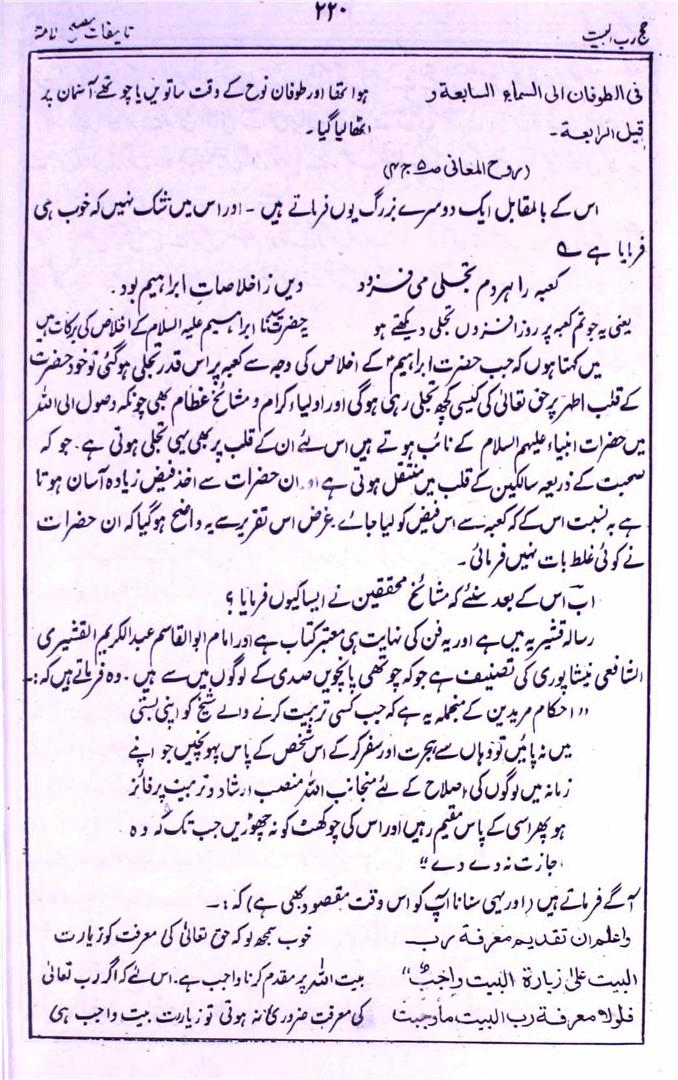 حج رب البیت ۲۲۰ تالیفات مصلح الامۃ
فی الطوفان الی السماء السابعۃ و ہوا تھا اور طوفان نوح کے وقت ساتویں یا چوتھے آسمان پر
قیل الرابعۃ۔ اٹھا لیا گیا۔
(روح المعانی ص۵ ج۴)
اس کے بالمقابل ایک دوسرے بزرگ یوں فرماتے ہیں۔ اور اس میں شک نہیں کہ خوب ہی
فرمایا ہے ؎
کعبہ را ہر دم تجلی می فزود دیں ز اخلاصاتِ ابراہیم بود
یعنی یہ جو تم کعبہ پر روز افزوں تجلی دیکھتے ہو یہ حضرت سیدنا ابراہیم علیہ السلام کے اخلاص کی برکات ہیں
میں کہتا ہوں کہ جب حضرت ابراہیمؑ کے اخلاص کی وجہ سے کعبہ پر اس قدر تجلی ہوگئی تو خود حضرت
کے قلب اطہر پر حق تعالیٰ کی کیسی کچھ تجلی رہی ہوگی اور اولیاء کرام و مشائخ عظام بھی چونکہ وصول الی اللہ
میں حضرات انبیاء علیہم السلام کے نائب ہوتے ہیں اس لئے ان کے قلب پر بھی یہی تجلی ہوتی ہے۔ جو کہ
صحبت کے ذریعہ سالکین کے قلب میں منتقل ہوتی ہے اور ان حضرات سے اخذ فیض زیادہ آسان ہوتا
ہے بہ نسبت اس کے کہ کعبہ سے اس فیض کو لیا جائے۔ غرض اس تقریر سے یہ واضح ہوگیا کہ ان حضرات
نے کوئی غلط بات نہیں فرمائی۔
اب اس کے بعد سنئے کہ مشائخ محققین نے ایسا کیوں فرمایا ؟
رسالہ قشیریہ میں ہے اور یہ فن کی نہایت ہی معتبر کتاب ہے اور امام ابوالقاسم عبدالکریم القشیری
الشافعی نیشاپوری کی تصنیف ہے جو کہ چوتھی پانچویں صدی کے لوگوں میں سے ہیں۔ وہ فرماتے ہیں کہ :۔
" احکام مریدین کے منجملہ یہ ہے کہ جب کسی تربیت کرنے والے شیخ کو اپنی بستی
میں نہ پائیں تو وہاں سے ہجرت اور سفر کرکے اس شخص کے پاس پہونچیں جو اپنے
زمانہ میں لوگوں کی اصلاح کے لئے منجانب اللہ منصب ارشاد و تربیت پر فائز
ہو پھر اسی کے پاس مقیم رہیں اور اس کی چوکھٹ کو نہ چھوڑیں جب تک کہ وہ
اجازت نہ دے دے "
آگے فرماتے ہیں (اور یہی سنانا آپ کو اس وقت مقصود بھی ہے) کہ :۔
واعلم ان تقدیم معرفۃ رب خوب سمجھ لو کہ حق تعالیٰ کی معرفت کو زیارت
البیت علیٰ زیارۃ البیت واجبٌ" بیت اللہ پر مقدم کرنا واجب ہے۔ اس لئے کہ اگر رب تعالیٰ
فلولا معرفۃ رب البیت ماوجبت کی معرفت ضروری نہ ہوتی تو زیارت بیت واجب ہی